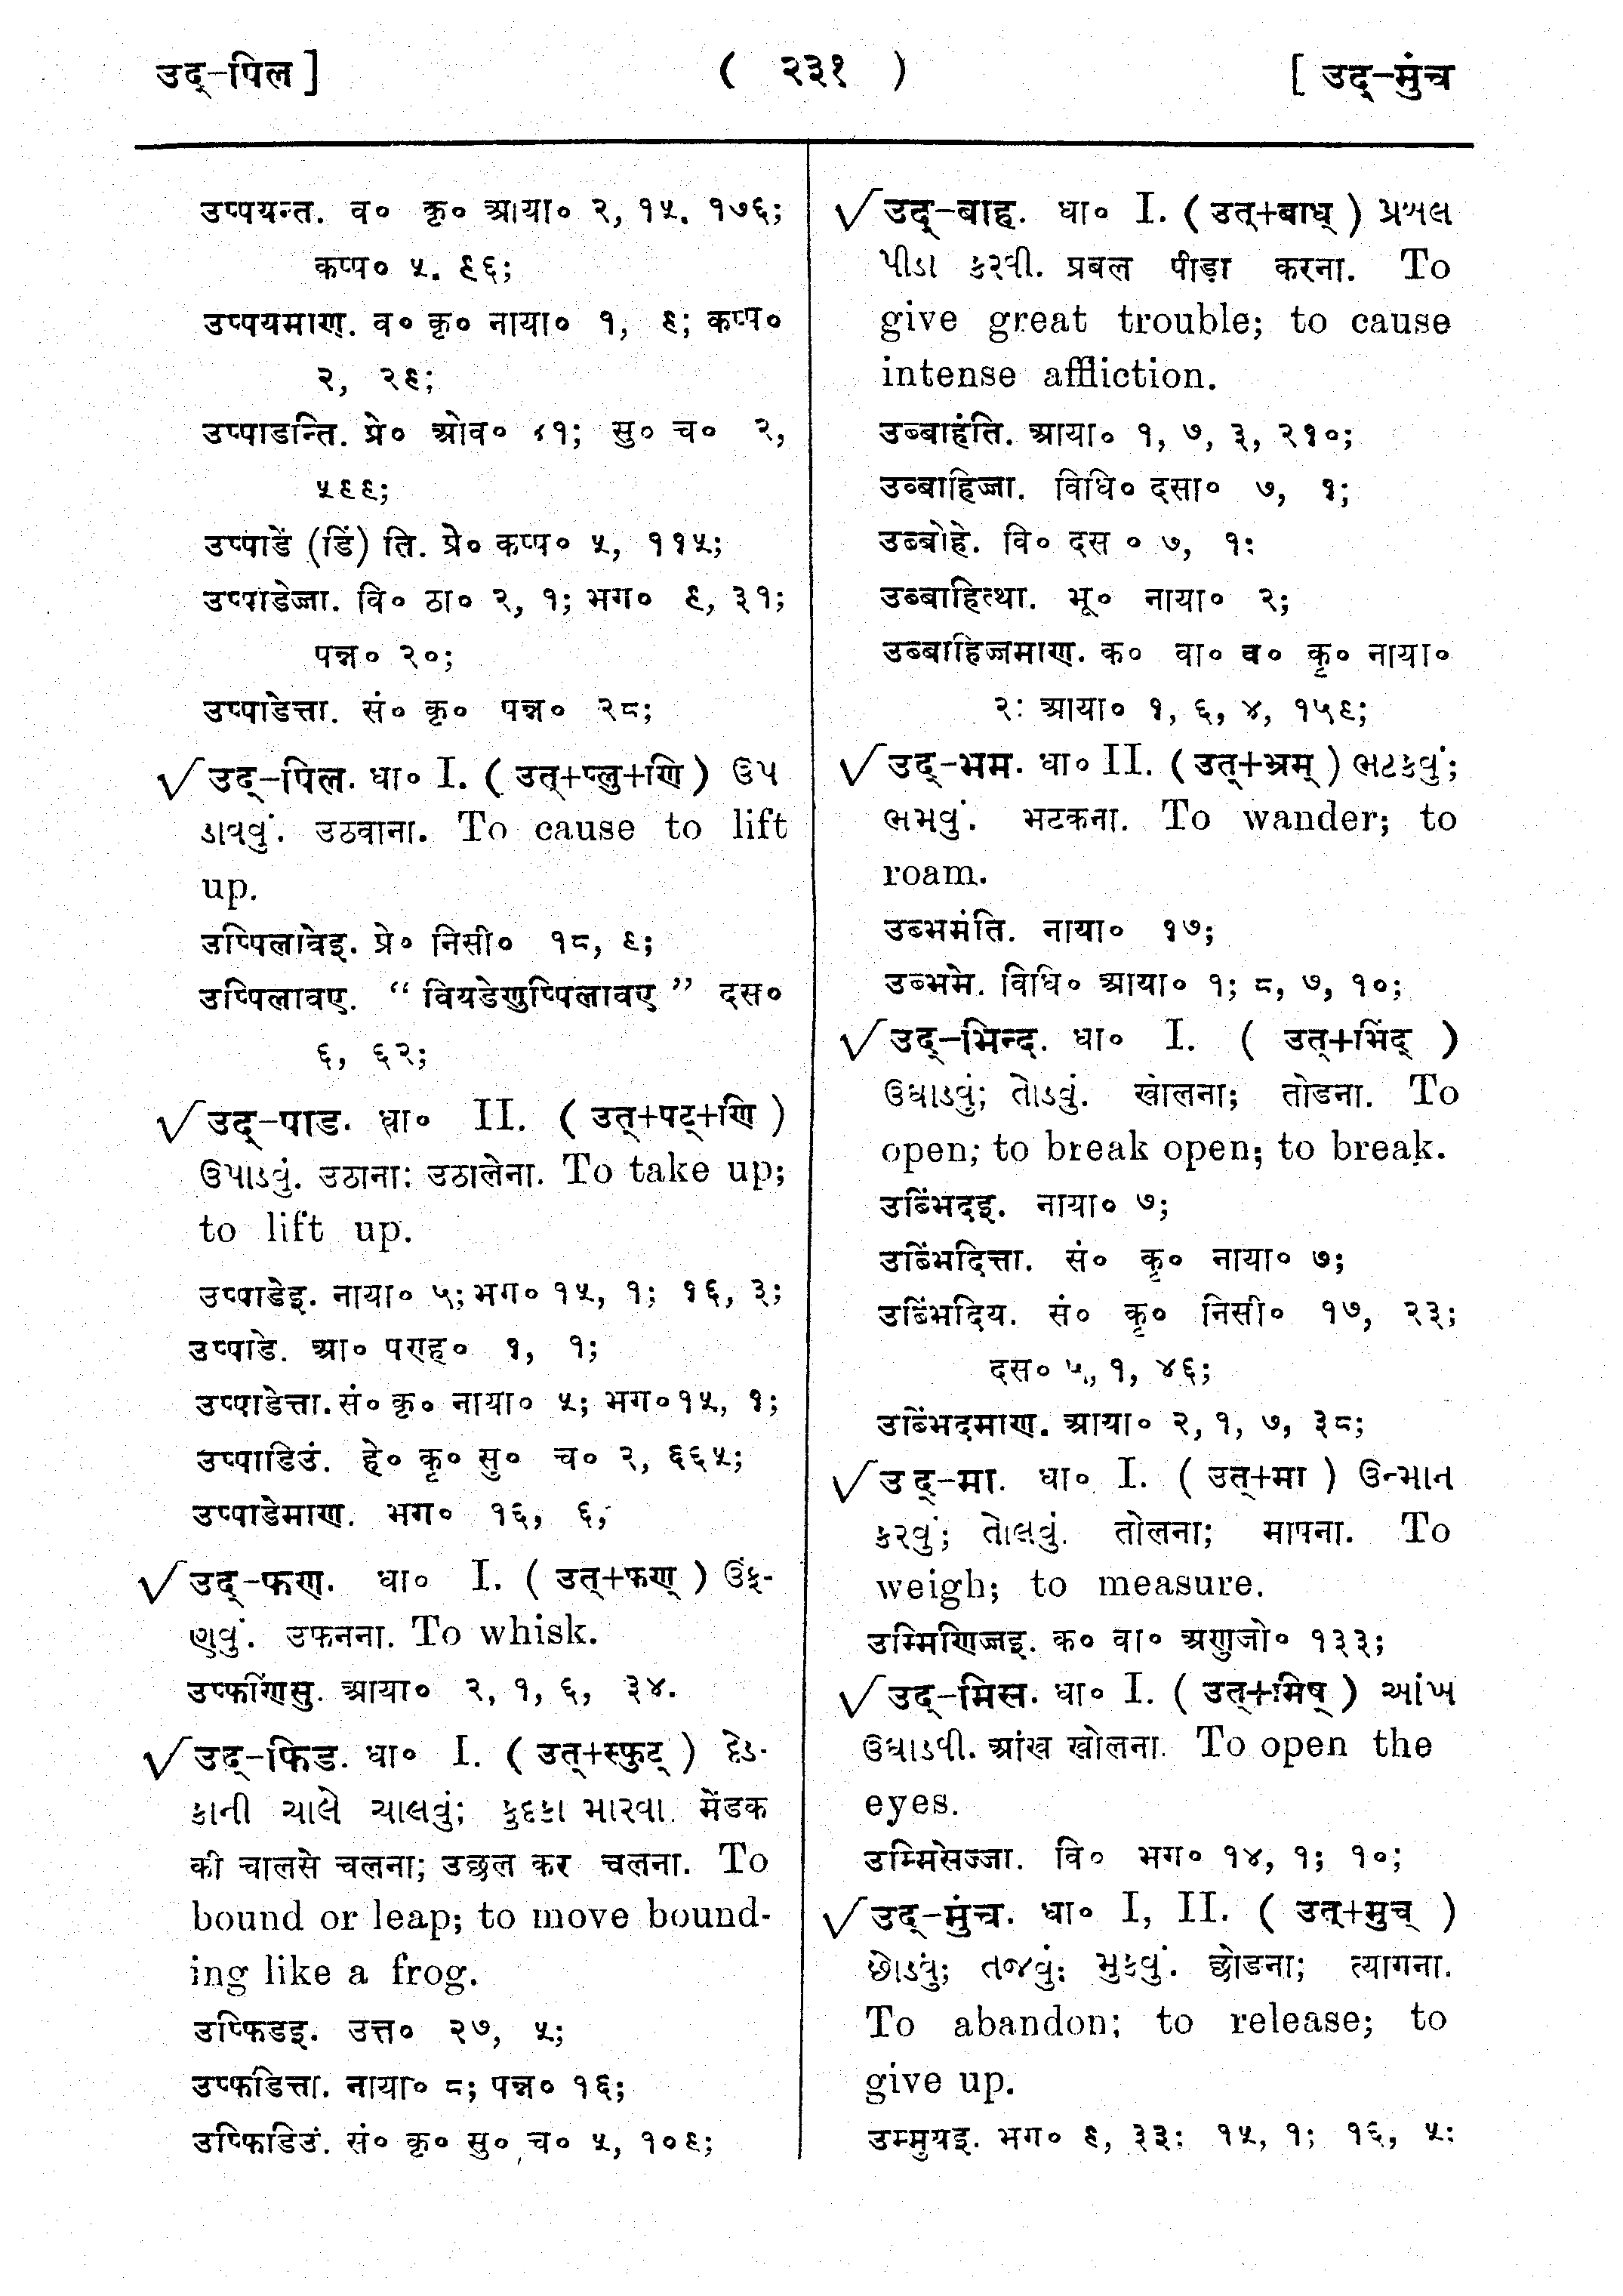 उद्-पिल ]
( २३१ )
[ उद्-मुंच
उप्पयन्त. व० कृ० आया० २, १५. १७६;
कप्प० ५. ९६;
उप्पयमाण. व० कृ० नाया० १, ९; कप्प०
२, २९;
उप्पाडन्ति. प्रे० ओव० ४१; सु० च० २,
५९९;
उप्पाडें (डिं) ति. प्रे० कप्प० ५, ११५;
उप्पाडेज्जा. वि० ठा० २, १; भग० ९, ३१;
पन्न० २०;
उप्पाडेत्ता. सं० कृ० पन्न० २८;
√ उद्-पिल. धा० I. ( उत्+प्लु+णि ) ઉપ
ડાવવું. उठवाना. To cause to lift
up.
उप्पिलावेइ. प्रे० निसी० १८, ९;
उप्पिलावए. “ वियडेणुप्पिलावए ” दस०
६, ६२;
√ उद्-पाड. धा० II. ( उत्+पट्+णि )
ઉપાડવું. उठाना; उठालेना. To take up;
to lift up.
उप्पाडेइ. नाया० ५; भग० १५, १; १६, ३;
उप्पाडे. आ० पएह० १, १;
उप्पाडेत्ता. सं० कृ० नाया० ५; भग० १५, १;
उप्पाडिउं. हे० कृ० सु० च० २, ६६५;
उप्पाडेमाण. भग० १६, ६;
√ उद्-फण. धा० I. ( उत्+फण् ) ઉંફ-
ણવું. उफनना. To whisk.
उप्फणिंसु. आया० २, १, ६, ३४.
√ उद्-फिड. धा० I. ( उत्+स्फुट् ) દેડ-
કાની ચાલે ચાલવું; કુદકા મારવા. मेंडक
की चालसे चलना; उछल कर चलना. To
bound or leap; to move bound-
ing like a frog.
उप्फिडइ. उत्त० २७, ५;
उप्फडित्ता. नाया० ८; पन्न० १६;
उप्फिडिउं. सं० कृ० सु० च० ५, १०९;
√ उद्-बाह. धा० I. ( उत्+बाध् ) પ્રબલ
પીડા કરવી. प्रबल पीड़ा करना. To
give great trouble; to cause
intense affliction.
उब्बाहंति. आया० १, ७, ३, २१०;
उब्बाहिज्जा. विधि० दसा० ७, १;
उब्बोहे. वि० दस ० ७, १:
उब्बाहित्था. भू० नाया० २;
उब्बाहिज्जमाण. क० वा० व० कृ० नाया०
२: आया० १, ६, ४, १५९;
√ उद्-भम. धा० II. ( उत्+भ्रम् ) ભટકવું;
ભમવું. भटकना. To wander; to
roam.
उब्भमंति. नाया० १७;
उब्भमे. विधि० आया० १; ८, ७, १०;
√ उद्-भिन्द. धा० I. ( उत्+भिंद् )
ઉઘાડવું; તોડવું. खोलना; तोडना. To
open; to break open; to break.
उब्भिंदइ. नाया० ७;
उब्भिंदित्ता. सं० कृ० नाया० ७;
उब्भिंदिय. सं० कृ० निसी० १७, २३;
दस० ५, १, ४६;
उब्भिंदमाण. आया० २, १, ७, ३८;
√ उद्-मा. धा० I. ( उत्+मा ) ઉન્માન
કરવું; તોલવું. तोलना; मापना. To
weigh; to measure.
उम्मिणिज्जइ. क० वा० अणुजो० १३३;
√ उद्-मिस. धा० I. ( उत्+मिष् ) આંખ
ઉઘાડવી. आंख खोलना. To open the
eyes.
उम्मिसेज्जा. वि० भग० १४, १; १०;
√ उद्-मुंच. धा० I, II. ( उत्+मुच् )
છોડવું; તજવું; મુકવું. छोडना; त्यागना.
To abandon; to release; to
give up.
उम्मुयइ. भग० ९, ३३: १५, १; १६, ५: